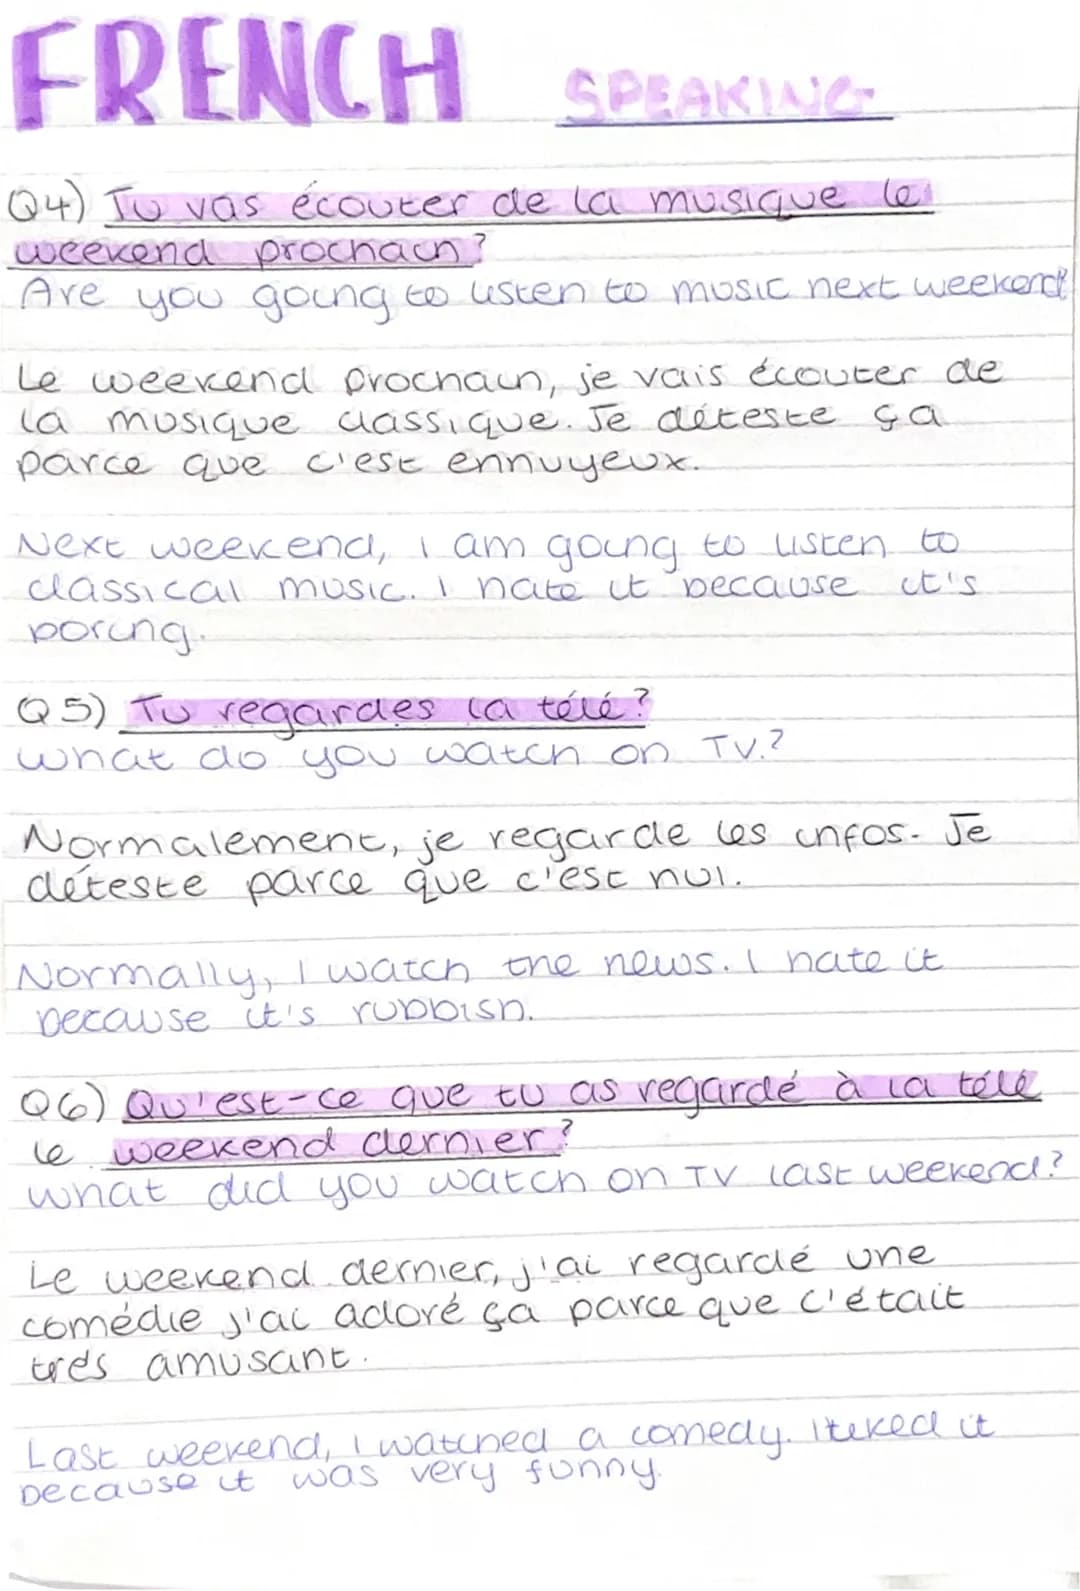 FRENCH SPEAKING
Q4) Tu vas écouter de la musique le
weekend prochain?
Are you going to listen to music next weekend?
Le weekend prochain, je vais écouter de
la musique classique. Je déteste ça
parce que c'est ennuyeux.
Next weekend, I am going to listen to
classical music. I hate it because it's
boring.
Q5) Tu regardes la télé?
What do you watch on TV.?
Normalement, je regarde les infos. Je
déteste parce que c'est nul.
Normally, I watch the news. I hate it
because it's rubbish.
Q6) Qu'est-ce que tu as regardé à la télé
le weekend dernier?
What did you watch on TV last weekend?
Le weekend dernier, j'ai regardé une
comédie j'ai adoré ça parce que c'était
trés amusant.
Last weekend, I watched a comedy. I it
because it was very funny.